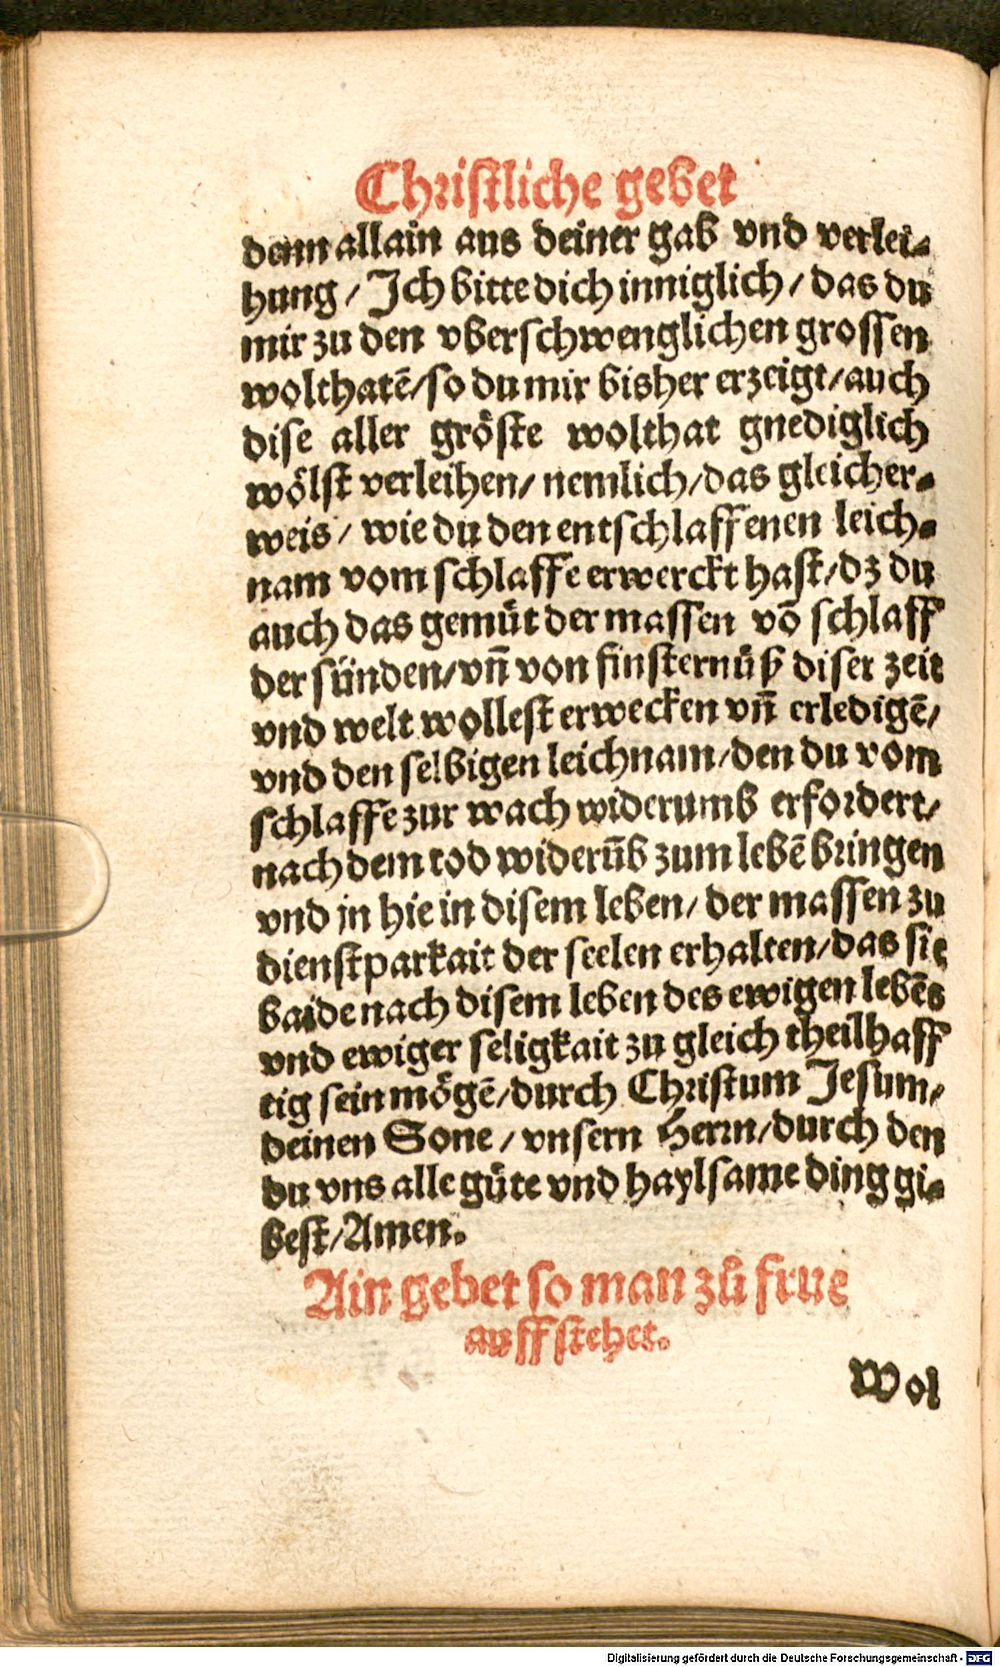 Christliche gebet
denn allain aus deiner gab vnd verlei-
hung / Ich bitte dich inniglich / das du
mir zu den vberschwenglichen grossen
wolthatē/so du mir bisher erzeigt/auch
dise aller gröste wolthat gnediglich
wölst verleihen/ nemlich/das gleicher-
weis / wie du den entschlaffenen leich-
nam vom schlaffe erwerckt hast/dz du
auch das gemüt der massen vō schlaff
der sünden/vñ von finsternüß diser zeit
vnd welt wollest erwecken vñ erledigē/
vnd den selbigen leichnam/den du vom
schlaffe zur wach widerumb erfordert/
nach dem tod widerūb zum lebē bringen
vnd jn hie in disem leben/ der massen zu
dienstparkait der seelen erhalten/das sie
baide nach disem leben des ewigen lebēs
vnd ewiger seligkait zu gleich theilhaff
tig sein mögē/durch Christum Jesum/
deinen Sone / vnsern Herrn/durch den
du vns alle güte vnd haylsame ding gi-
best/Amen.
Ain gebet so man zů frue
auff stehet.
Wol
Digitalisierung gefördert durch die Deutsche Forschungsgemeinschaft - DFG